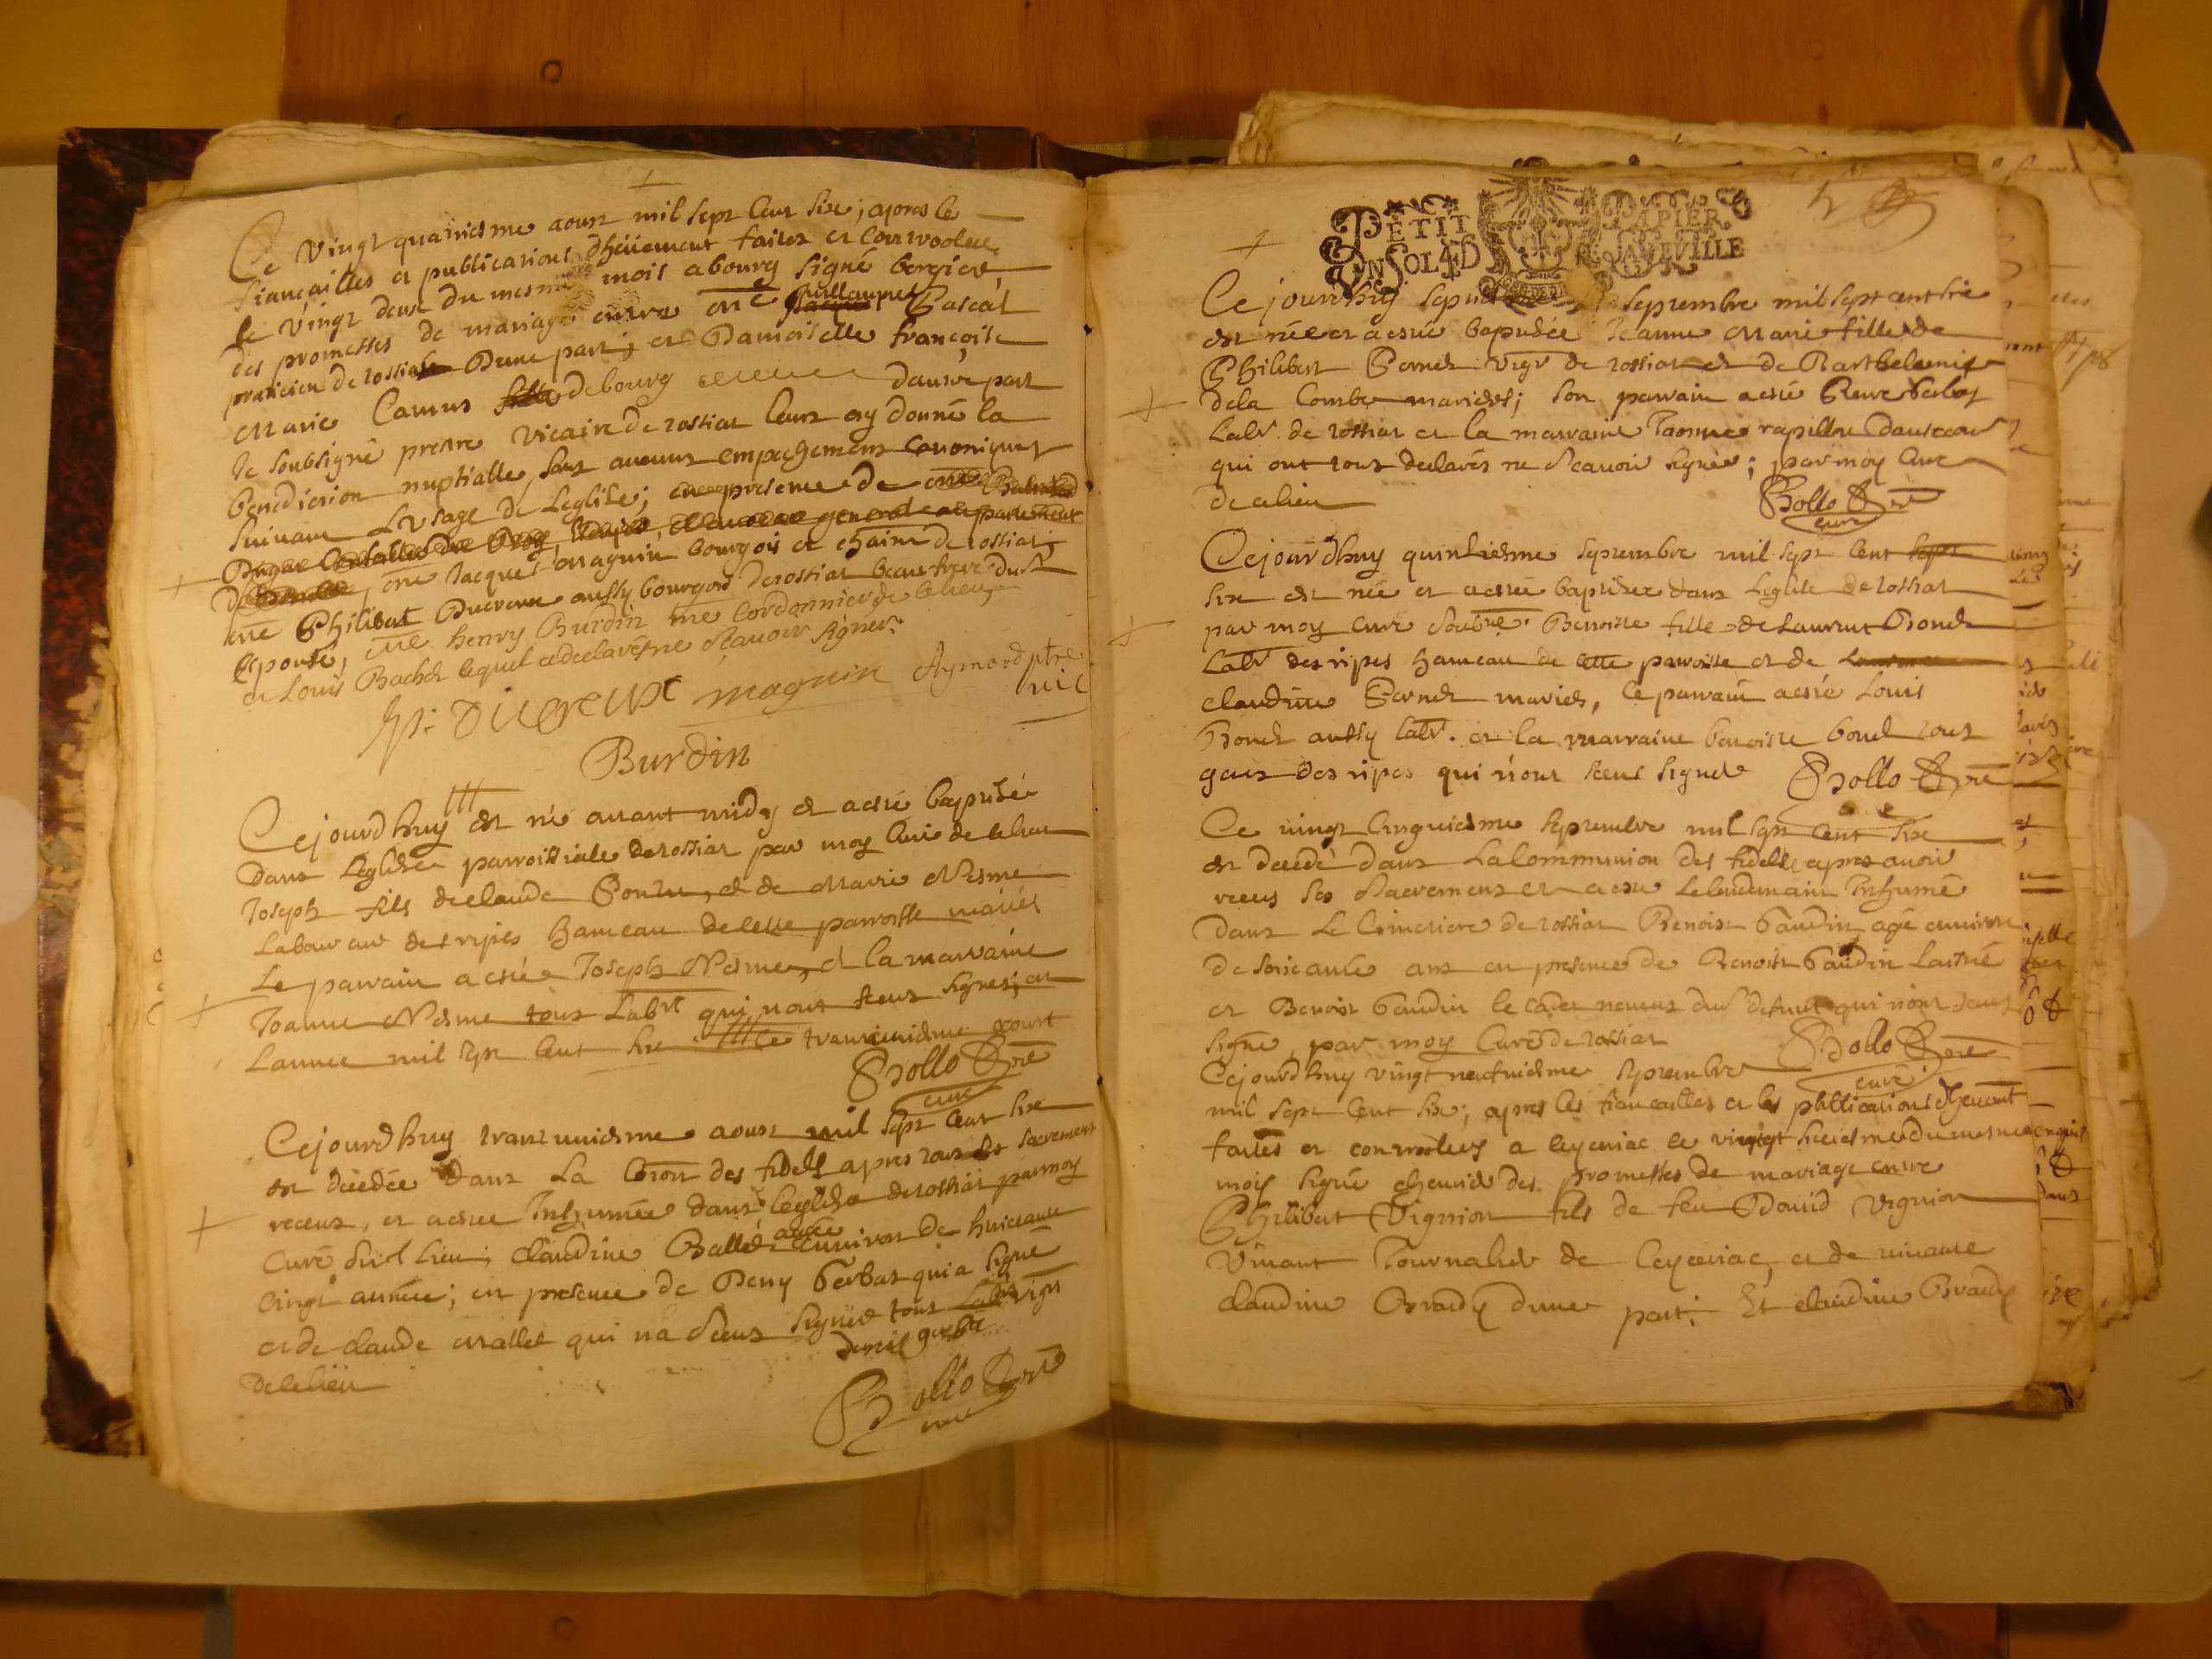 Ce vingt quatriesme aoust mil sept cent six; apres les
fiancailles et publications dheüement faites et controolees
le vingt deux du mesme mois a bourg signé bergier
des promesses de mariage entre me guillaume Pascal
praticien de rossiat Dune part; et Damoiselle françoise
Marie Camus de bourg dautre part
Je soubsigné prestre vicaire de rossiat leurs ay donné la
benediction nuptialle sans aucuns empechemens canoniques
suivant Lusage de Leglise; en presence de
me Jacques Magnin bourgois et chatn de rossiat,
me Philibert Ducreux aussy bourgois de rossiat beau frere dud
espouse, me henry Burdin me Cordonnier de ce lieu,
et Louis Bachet lequel a declaré ne scauoir signer.
ph: Ducreux magnin Aymard ptre
vic
Burdin
Cejourdhuy est né auant midy et a esté baptisé
dans Leglise parroissiale de rossiat par moy curé de ce lieu
Joseph fils de claude et de Marie Nesme
Laboureur des ripes hameau de cette parroisse mariés
Le parrain a esté Joseph Nesme, et la marraine
Joanne Nesme tous Labrs qui nont sceus signer; en
Lannee mil sept cent six Ce trante uniesme aoust
Dollo ptre
curé
Cejourdhuy trante uniesme aoust mil sept cent six
est décedée dans La Coron des fidels apres tous les sacremens
receus, et a estee Inhumée dans leglise de rossiat par moy
Curé dud lieu; claudine Ballet agée enuiron de huictante
cinqt années; en presence de Deny Gerbat qui a signé
et de claude Mallet qui na sceus signer tous vigrs
de ce lieu
denis gerba
Dollo ptre
curé
PETIT PAPIER
UN SOL 4 D LA FEVILLE
Cejourdhuy septembre mil sept cent six
est née et a esté baptisée Jeanne Marie fille de
Philibert Pernet vigr de rossiat et de Barthelemie
dela Combe mariés; son parrain a esté
Labr. de rossiat et la marraine
qui ont tous declarés ne scauoir signer; par moy curé
de ce lieu
Dollo ptre
curé
Cejourdhuy quinziesme septembre mil sept cent
six est née et a esté baptisée dans Leglise de rossiat
par moy curé soubné. Benoiste fille de Laurent Bondet
Labr des ripes hameau de cette parroisse et de
claudine Pernet mariés, le parrain a esté Louis
Bondet aussy labr. et la marraine benoiste tous
gens des ripes qui n'ont sceus signer Dollo ptre
Ce vingt cinquiesme septembre mil sept cent six
est decedé dans La Communion des fidels apres auoir
receus les Sacremens et a esté Le lendemain Inhumé
dans Le Cimetiere de rossiat Benoist Gaudin agé enuiron
de soixante ans en presence de Benoist Gaudin Laisné
et Benoist Gaudin le cadet neueus dud defunt qui n'ont sceus
signé, par moy Curé de rossiat Dollo ptre
curé
Cejourdhuy vingt neufuiesme septembre
mil sept cent six; apres les fiancailles et les publications dheuemt
faites et controolees a ceyzeriac le vingt sixiesme du mesme
mois signé chenies des promesses de mariage entre
Philibert Vignion fils de feu Dauid Vignion
viuant Journalier de ceyzeriac, et de viuante
claudine Brandy dune part; Et claudine Brandy